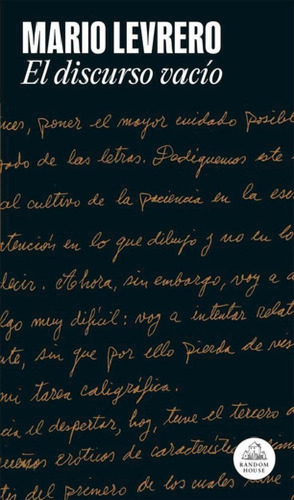 MARIO LEVRERO
El discurso vacío
nces, poner el mayor cuidado posibl
zado de las letras. Dediquemos este
al cultivo de la paciencia en la esc
atención en lo que dibujo y no en lo
decir. Ahora, sin embargo, voy a
lgo muy difícil: voy a intentar relat
nte, sin que por ello pierda de vis
mi tarea caligráfica.
al despertar, hoy, tuve el tercero d
sueños eróticos de característic
del primero de los cuales
RANDOM
HOUSE